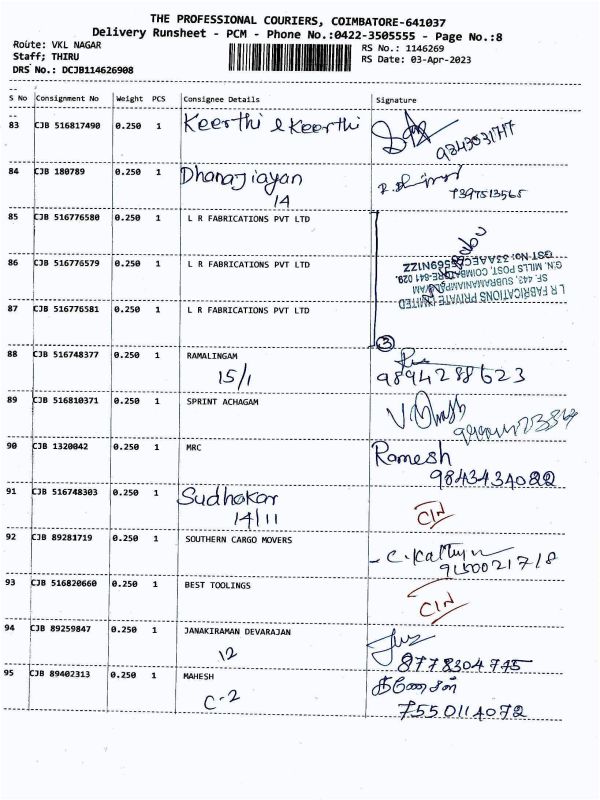 THE PROFESSIONAL COURIERS, COIMBATORE-641037
Delivery Runsheet - PCM - Phone No.:0422-3505555 - Page No.:8
Route: VKL NAGAR
RS No.: 1146269
Staff; THIRU
RS Date: 03-Apr-2023
DRS No.: DCJB114626908
S No Consignment No Weight PCS Consignee Details Signature
83 CJB 516817490 0.250 1 Keerthi & Keerthi
84 CJB 180789 0.250 1 Dhanajiayan
14
7397513565
85 CJB 516776580 0.250 1 L R FABRICATIONS PVT LTD
86 CJB 516776579 0.250 1 L R FABRICATIONS PVT LTD
87 CJB 516776581 0.250 1 L R FABRICATIONS PVT LTD
L R FABRICATIONS PRIVATE LIMITED
SF. 443, SUBRAMANIAMPALAYAM
G.N. MILLS POST, COIMBATORE-641 029.
3
88 CJB 516748377 0.250 1 RAMALINGAM
15/1 9894288623
89 CJB 516810371 0.250 1 SPRINT ACHAGAM
90 CJB 1320042 0.250 1 MRC Ramesh
91 CJB 516748303 0.250 1 Sudhakar
14/11 CIN
92 CJB 89281719 0.250 1 SOUTHERN CARGO MOVERS
93 CJB 516820660 0.250 1 BEST TOOLINGS
CIN
94 CJB 89259847 0.250 1 JANAKIRAMAN DEVARAJAN
12 8778304745
95 CJB 89402313 0.250 1 MAHESH கணேசன்
C-2 7550114072